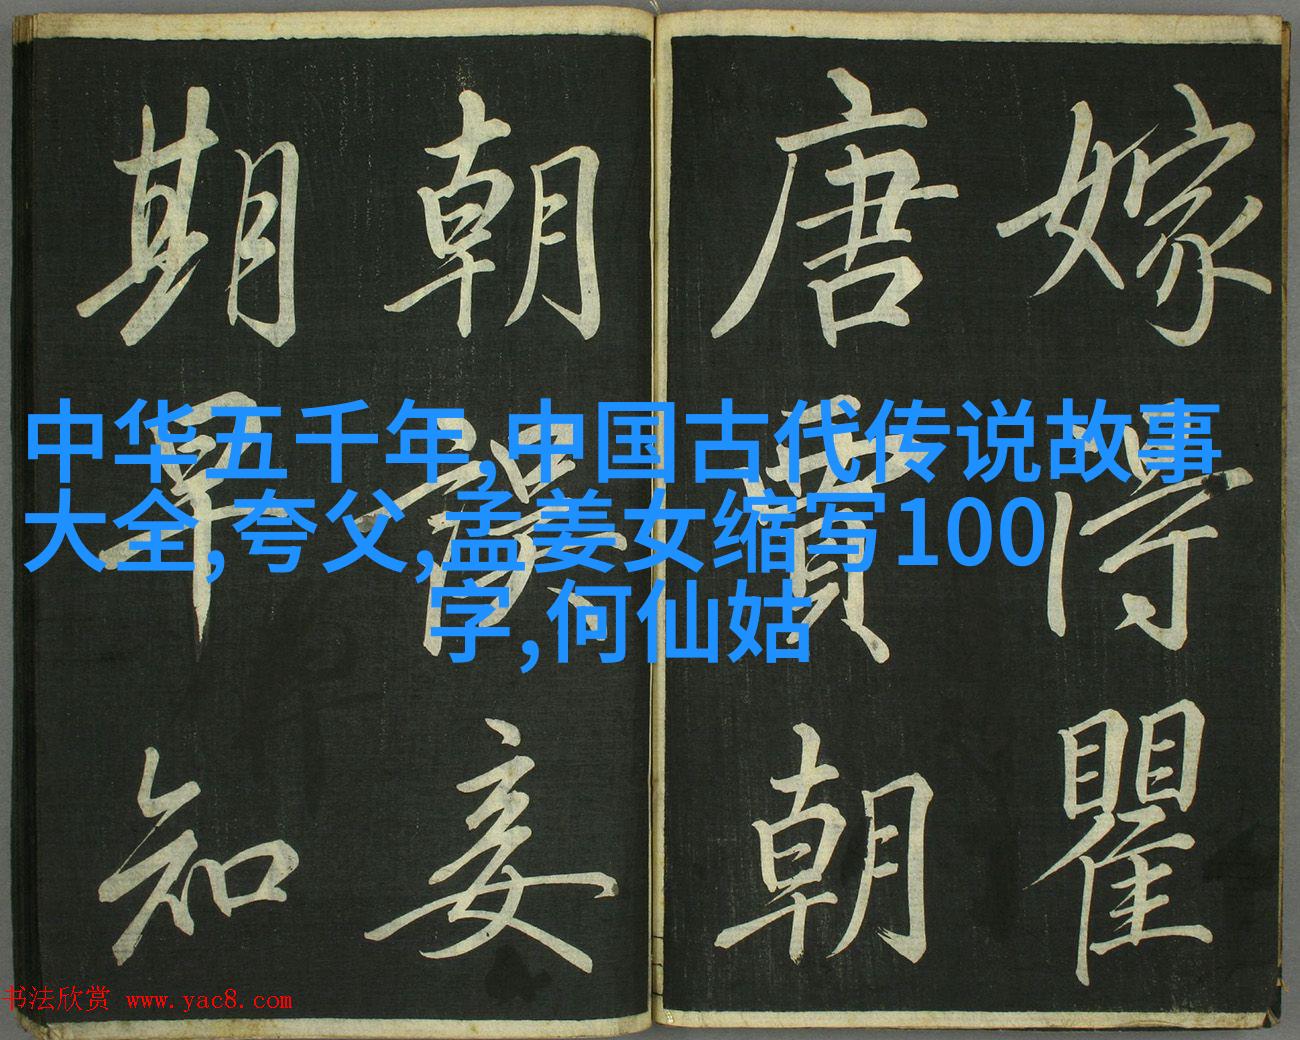 嫁得瞿
唐賈朝
朝誤妾
期早知
中华五千年,中国古代传说故事
大全,夸父,孟姜女缩写100
字,何仙姑
书法欣赏 www.yac8.com